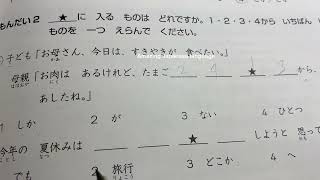 もんだい2 ★に 入る ものは どれですか。1・2・3・4から いちばん
ものを 一つ えらんで ください。
子ども「お母さん、今日は、すきやきが 食べたい。」
母親「お肉は あるけれど、たまご 2 4 1 3
ははおや にく
あしたね。」
1 しか 2 が 3 ない 4 ひとつ
今年の 夏休みは ★ しようと 思って
ことし なつ
でも 2 旅行 3 どこか 4 へ
りょこう